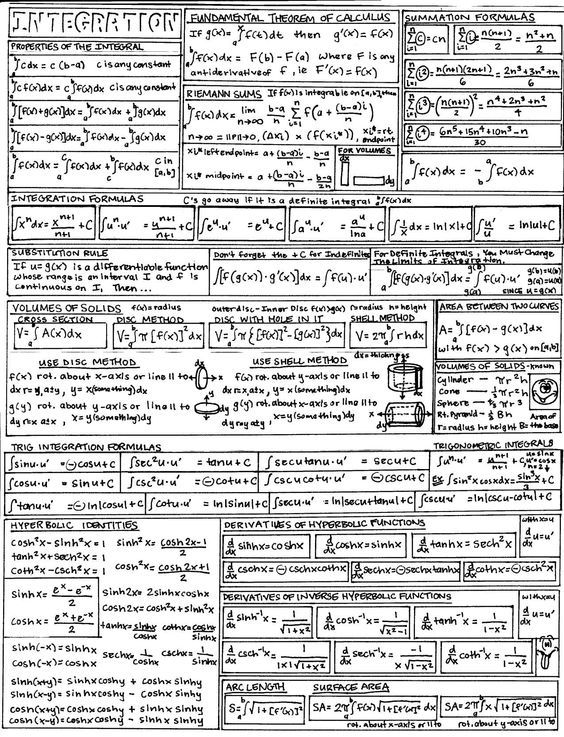 INTEGRATION
PROPERTIES OF THE INTEGRAL
∫ₐᵇ cdx = c (b-a) c is any constant
∫ₐᵇ cf(x)dx = c∫ₐᵇ f(x)dx c is any constant
∫ₐᵇ [f(x)+g(x)]dx = ∫ₐᵇ f(x)dx + ∫ₐᵇ g(x)dx
∫ₐᵇ [f(x)-g(x)]dx = ∫ₐᵇ f(x)dx - ∫ₐᵇ g(x)dx
∫ₐᵇ f(x)dx = ∫ₐᶜ f(x)dx + ∫_c^b f(x)dx c in [a,b]
FUNDAMENTAL THEOREM OF CALCULUS
If g(x) = ∫ₐˣ f(t)dt then g'(x) = f(x)
∫ₐᵇ f(x)dx = F(b) - F(a) Where F is any
antiderivative of f, ie F'(x) = f(x)
RIEMANN SUMS If f(x) is integrable on [a,b], then
∫ₐᵇ f(x)dx = lim n→∞ (b-a)/n Σ f(a + (b-a)i/n)
n→∞ = ||P||→0, (Δxi) × (f(xi*)), xi* = rt. endpoint
xi* left endpoint = a + (b-a)i/n - (b-a)/n
xi* midpoint = a + (b-a)i/n - (b-a)/2n
FOR VOLUMES
dx
dy
SUMMATION FORMULAS
Σ(c) = cn
Σ(i) = n(n+1)/2 = (n²+n)/2
Σ(i²) = n(n+1)(2n+1)/6 = (2n³+3n²+n)/6
Σ(i³) = (n(n+1)/2)² = (n⁴+2n³+n²)/4
Σ(i⁴) = (6n⁵+15n⁴+10n³-n)/30
∫ₐᵇ f(x)dx = -∫_b^a f(x)dx
INTEGRATION FORMULAS C's go away if it is a definite integral ∫ₐᵇ f(x)dx
∫xⁿdx = xⁿ⁺¹/(n+1) + C
∫uⁿ·u' = uⁿ⁺¹/(n+1) + C
∫eᵘ·u' = eᵘ + C
∫aᵘ·u' = aᵘ/lna + C
∫1/x dx = ln|x| + C
∫u'/u = ln|u| + C
SUBSTITUTION RULE
If u = g(x) is a differentiable function
whose range is an interval I and f is
continuous on I, Then ...
Don't forget the +C for Indefinite
∫[f(g(x))·g'(x)]dx = ∫f(u)·u'
For Definite Integrals, You Must Change
The Limits of Integration.
∫ₐᵇ[f(g(x)·g'(x)]dx = ∫_{g(a)}^{g(b)} f(u)·u'
g(b)=u(b)
g(a)=u(a)
SINCE u = g(x)
VOLUMES OF SOLIDS f(x)=radius outer disc - Inner Disc f(x)>g(x) r=radius h=height
CROSS SECTION
V = ∫ₐᵇ A(x)dx
DISC METHOD
V = ∫ₐᵇ π[f(x)]²dx
DISC WITH HOLE IN IT
V = ∫ₐᵇ π{[f(x)]²-[g(x)]²}dx
SHELL METHOD
V = 2π∫ₐᵇ rhdx
USE DISC METHOD
f(x) rot. about x-axis or line || to
dx r=y, a±y, y = x(something)dx
g(y) rot. about y-axis or line || to
dy r=x a±x, x = y(something)dy
dx
x
y
dy
USE SHELL METHOD
dx = thickness
f(x) rot. about y-axis or line || to
dx r=x, a±x, y = x(something)dx
g(y) rot. about x-axis or line || to
dy r=y a±y, x = y(something)dy
dx
y
x
dy
AREA BETWEEN TWO CURVES
A = ∫ₐᵇ[f(x)-g(x)]dx
with f(x) > g(x) on [a,b]
VOLUMES OF SOLIDS - known
Cylinder - πr²h
Cone - ⅓πr²h
Sphere - 4/3 πr³
Rt. Pyramid - ⅓Bh
r=radius h=height B=Area of the base
TRIG INTEGRATION FORMULAS
∫sinu·u' = ⊖cosu+C
∫sec²u·u' = tanu+C
∫secutanu·u' = secu+C
∫cosu·u' = sinu+C
∫csc²u·u' = ⊖cotu+C
∫cscucotu·u' = ⊖cscu+C
∫tanu·u' = ⊖ln|cosu|+C
∫cotu·u' = ln|sinu|+C
∫secu·u' = ln|secu+tanu|+C
∫cscu·u' = ln|cscu-cotu|+C
TRIGONOMETRIC INTEGRALS
∫uⁿ·u' = uⁿ⁺¹/(n+1) + C
u=sinx
u'=cosx
n=2
Ex ∫sin²xcosxdx = sin³x/3 + C
HYPERBOLIC IDENTITIES
cosh²x-sinh²x = 1
sinh²x = (cosh2x-1)/2
tanh²x+sech²x = 1
coth²x-csch²x = 1
cosh²x = (cosh2x+1)/2
sinhx = (eˣ-e⁻ˣ)/2
sinh2x = 2sinhxcoshx
cosh2x = cosh²x+sinh²x
coshx = (eˣ+e⁻ˣ)/2
tanhx = sinhx/coshx
cothx = coshx/sinhx
sinh(-x) = -sinhx
cosh(-x) = coshx
sechx = 1/coshx
cschx = 1/sinhx
sinh(x+y) = sinhxcoshy + coshxsinhy
sinh(x-y) = sinhxcoshy - coshxsinhy
cosh(x+y) = coshxcoshy + sinhxsinhy
cosh(x-y) = coshxcoshy - sinhxsinhy
DERIVATIVES OF HYPERBOLIC FUNCTIONS
with x=u
d/dx u = u'
d/dx sinhx = coshx
d/dx coshx = sinhx
d/dx tanhx = sech²x
d/dx cschx = ⊖cschxcothx
d/dx sechx = ⊖sechxtanhx
d/dx cothx = ⊖csch²x
DERIVATIVES OF INVERSE HYPERBOLIC FUNCTIONS
with x=u
d/dx u = u'
d/dx sinh⁻¹x = 1/√(1+x²)
d/dx cosh⁻¹x = 1/√(x²-1)
d/dx tanh⁻¹x = 1/(1-x²)
d/dx csch⁻¹x = 1/(|x|√(1+x²))
d/dx sech⁻¹x = -1/(x√(1-x²))
d/dx coth⁻¹x = 1/(1-x²)
ARC LENGTH
S = ∫ₐᵇ√(1+[f'(x)]²)
SURFACE AREA
SA = 2π∫ₐᵇ f(x)√(1+[f'(x)]²) dx
rot. about x-axis or || to
SA = 2π∫ₐᵇ x√(1+[f'(x)]²) dx
rot. about y-axis or || to